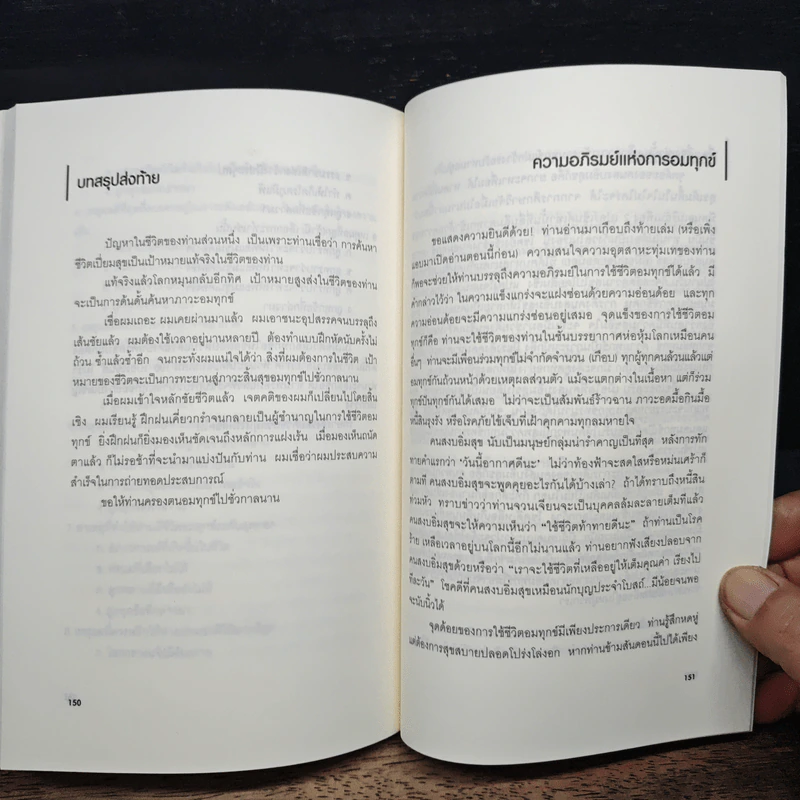 บทสรุปส่งท้าย
ปัญหาในชีวิตของท่านส่วนหนึ่ง เป็นเพราะท่านเชื่อว่า การค้นหา
ชีวิตเปี่ยมสุขเป็นเป้าหมายแท้จริงในชีวิตของท่าน
แท้จริงแล้วโลกหมุนกลับอีกทิศ เป้าหมายสูงส่งในชีวิตของท่าน
จะเป็นการดั้นด้นค้นหาภาวะอมทุกข์
เชื่อผมเถอะ ผมเคยผ่านมาแล้ว ผมเอาชนะอุปสรรคจนบรรลุถึง
เส้นชัยแล้ว ผมต้องใช้เวลาอยู่นานหลายปี ต้องทำแบบฝึกหัดนับครั้งไม่
ถ้วน ซ้ำแล้วซ้ำอีก จนกระทั่งผมแน่ใจได้ว่า สิ่งที่ผมต้องการในชีวิต เป้า
หมายของชีวิตจะเป็นการทะยานสู่ภาวะสิ้นสุขอมทุกข์ไปชั่วกาลนาน
เมื่อผมเข้าใจหลักชัยชีวิตแล้ว เจตคติของผมก็เปลี่ยนไปโดยสิ้น
เชิง ผมเรียนรู้ ฝึกฝนเคี่ยวกรำจนกลายเป็นผู้ชำนาญในการใช้ชีวิตอม
ทุกข์ ยิ่งฝึกฝนก็ยิ่งมองเห็นชัดเจนถึงหลักการแฝงเร้น เมื่อมองเห็นถนัด
ตาแล้ว ก็ไม่รอช้าที่จะนำมาแบ่งปันกับท่าน ผมเชื่อว่าผมประสบความ
สำเร็จในการถ่ายทอดประสบการณ์
ขอให้ท่านครองตนอมทุกข์ไปชั่วกาลนาน
150
ความอภิรมย์แห่งการอมทุกข์
ขอแสดงความยินดีด้วย! ท่านอ่านมาเกือบถึงท้ายเล่ม (หรือเพิ่ง
แอบมาเปิดอ่านตอนนี้ก่อน) ความสนใจความอุตสาหะทุ่มเทของท่าน
ก็พอจะช่วยให้ท่านบรรลุถึงความอภิรมย์ในการใช้ชีวิตอมทุกข์ได้แล้ว มี
คำกล่าวไว้ว่า ในความแข็งแกร่งจะแฝงซ่อนด้วยความอ่อนด้อย และทุก
ความอ่อนด้อยจะมีความแกร่งซ่อนอยู่เสมอ จุดแข็งของการใช้ชีวิตอม
ทุกข์ก็คือ ท่านจะใช้ชีวิตของท่านในชั้นบรรยากาศห่อหุ้มโลกเหมือนคน
อื่นๆ ท่านจะมีเพื่อนร่วมทุกข์ไม่จำกัดจำนวน (เกือบ) ทุกผู้ทุกคนล้วนแล้วแต่
อมทุกข์กันถ้วนหน้าด้วยเหตุผลส่วนตัว แม้จะแตกต่างในเนื้อหา แต่ก็ร่วม
ทุกข์ปันทุกข์กันได้เสมอ ไม่ว่าจะเป็นสัมพันธ์ร้าวฉาน ภาวะอดมื้อกินมื้อ
หนี้สินรุงรัง หรือโรคภัยไข้เจ็บที่เฝ้าคุกคามทุกลมหายใจ
คนสงบอิ่มสุข นับเป็นมนุษย์กลุ่มน่ารำคาญเป็นที่สุด หลังการทัก
ทายคำแรกว่า 'วันนี้อากาศดีนะ' ไม่ว่าท้องฟ้าจะสดใสหรือหม่นเศร้าก็
ตามที คนสงบอิ่มสุขจะพูดคุยอะไรกันได้บ้างเล่า? ถ้าได้ทราบถึงหนี้สิน
ท่วมหัว ทราบข่าวว่าท่านจวนเจียนจะเป็นบุคคลล้มละลายเต็มทีแล้ว
คนสงบอิ่มสุขจะให้ความเห็นว่า "ใช้ชีวิตท้าทายดีนะ" ถ้าท่านเป็นโรค
ร้าย เหลือเวลาอยู่บนโลกนี้อีกไม่นานแล้ว ท่านอยากฟังเสียงปลอบจาก
คนสงบอิ่มสุขด้วยหรือว่า "เราจะใช้ชีวิตที่เหลืออยู่ให้เต็มคุณค่า เรียงไป
ทีละวัน" โชคดีที่คนสงบอิ่มสุขเหมือนนักบุญประจำโบสถ์...มีน้อยจนพอ
จะนับนิ้วได้
จุดด้อยของการใช้ชีวิตอมทุกข์มีเพียงประการเดียว ท่านรู้สึกหดหู่
แต่ต้องการสุขสบายปลอดโปร่งโล่งอก หากท่านข้ามสันดอนนี้ไปได้เพียง
151